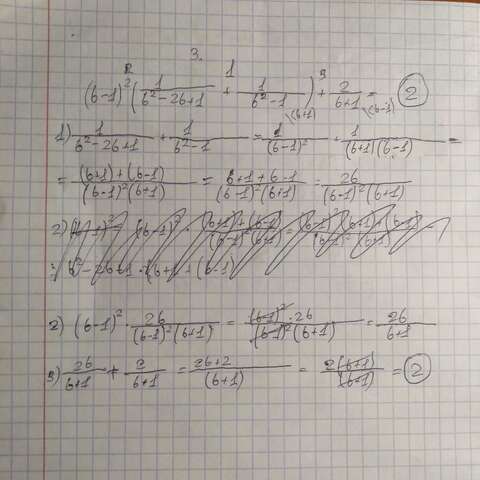 3.
2 1 3
(b-1)²(1/(b²-2b+1) + 1/(b²-1)) + 2/(b+1) = 2
1) 1/(b²-2b+1) + 1/(b²-1) = 1/(b-1)² \(b+1) + 1/((b+1)(b-1)) \(b-1) =
= ((b+1)+(b-1))/((b-1)²(b+1)) = (b+1+b-1)/((b-1)²(b+1)) = 2b/((b-1)²(b+1))
2) (b-1)² · 2b/((b-1)²(b+1)) = ((b-1)²·2b)/((b-1)²(b+1)) = 2b/(b+1)
3) 2b/(b+1) + 2/(b+1) = (2b+2)/(b+1) = 2(b+1)/(b+1) = 2